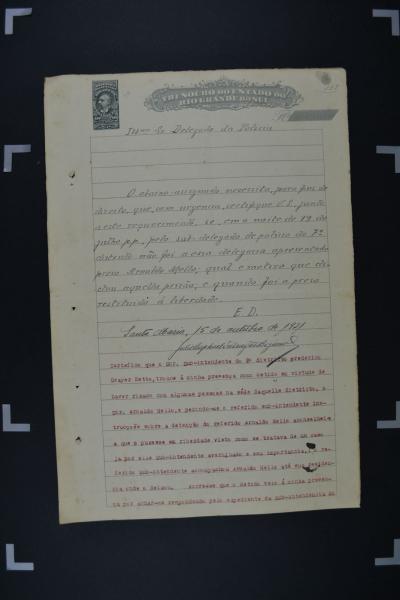 THESOURO DO ESTADO DO
RIO GRANDE DO SUL
Illmo Sr. Delegado da Policia
O abaixo assignado necessita, para fins de
direito, que, com urgencia, certifique V. S., junto
a este requerimento, se em a noite de 19 de
julho, pp., pelo sub-delegado de policia do 7º
districto não foi a essa delegacia apresentado
preso Arnaldo Mello; qual o motivo que
aquella prisão; e quando foi o preso
restituido á liberdade.
E. D.
Santa Maria, 15 de outubro de 1921
Certifico que o snr. sub-intendente do districto Frederico
Netto, trouxe á minha presença como detido em virtude de
haver rixado com algumas pessoas na séde daquelle districto, o
snr. Arnaldo Mello, e pedindo-me o referido sub-intendente ins-
trucções sobre a detenção do referido Arnaldo Mello aconselhei-o
a que o puzesse em liberdade visto como se tratava de um caso
já por elle sub-intendente e sem importancia, e o re-
ferido sub-intendente acompanhou Arnaldo Mello até sua residen-
cia onde o deixou. que o detido veio á minha presen-
ça por achar-se respondendo pelo expediente da sub-intendencia do